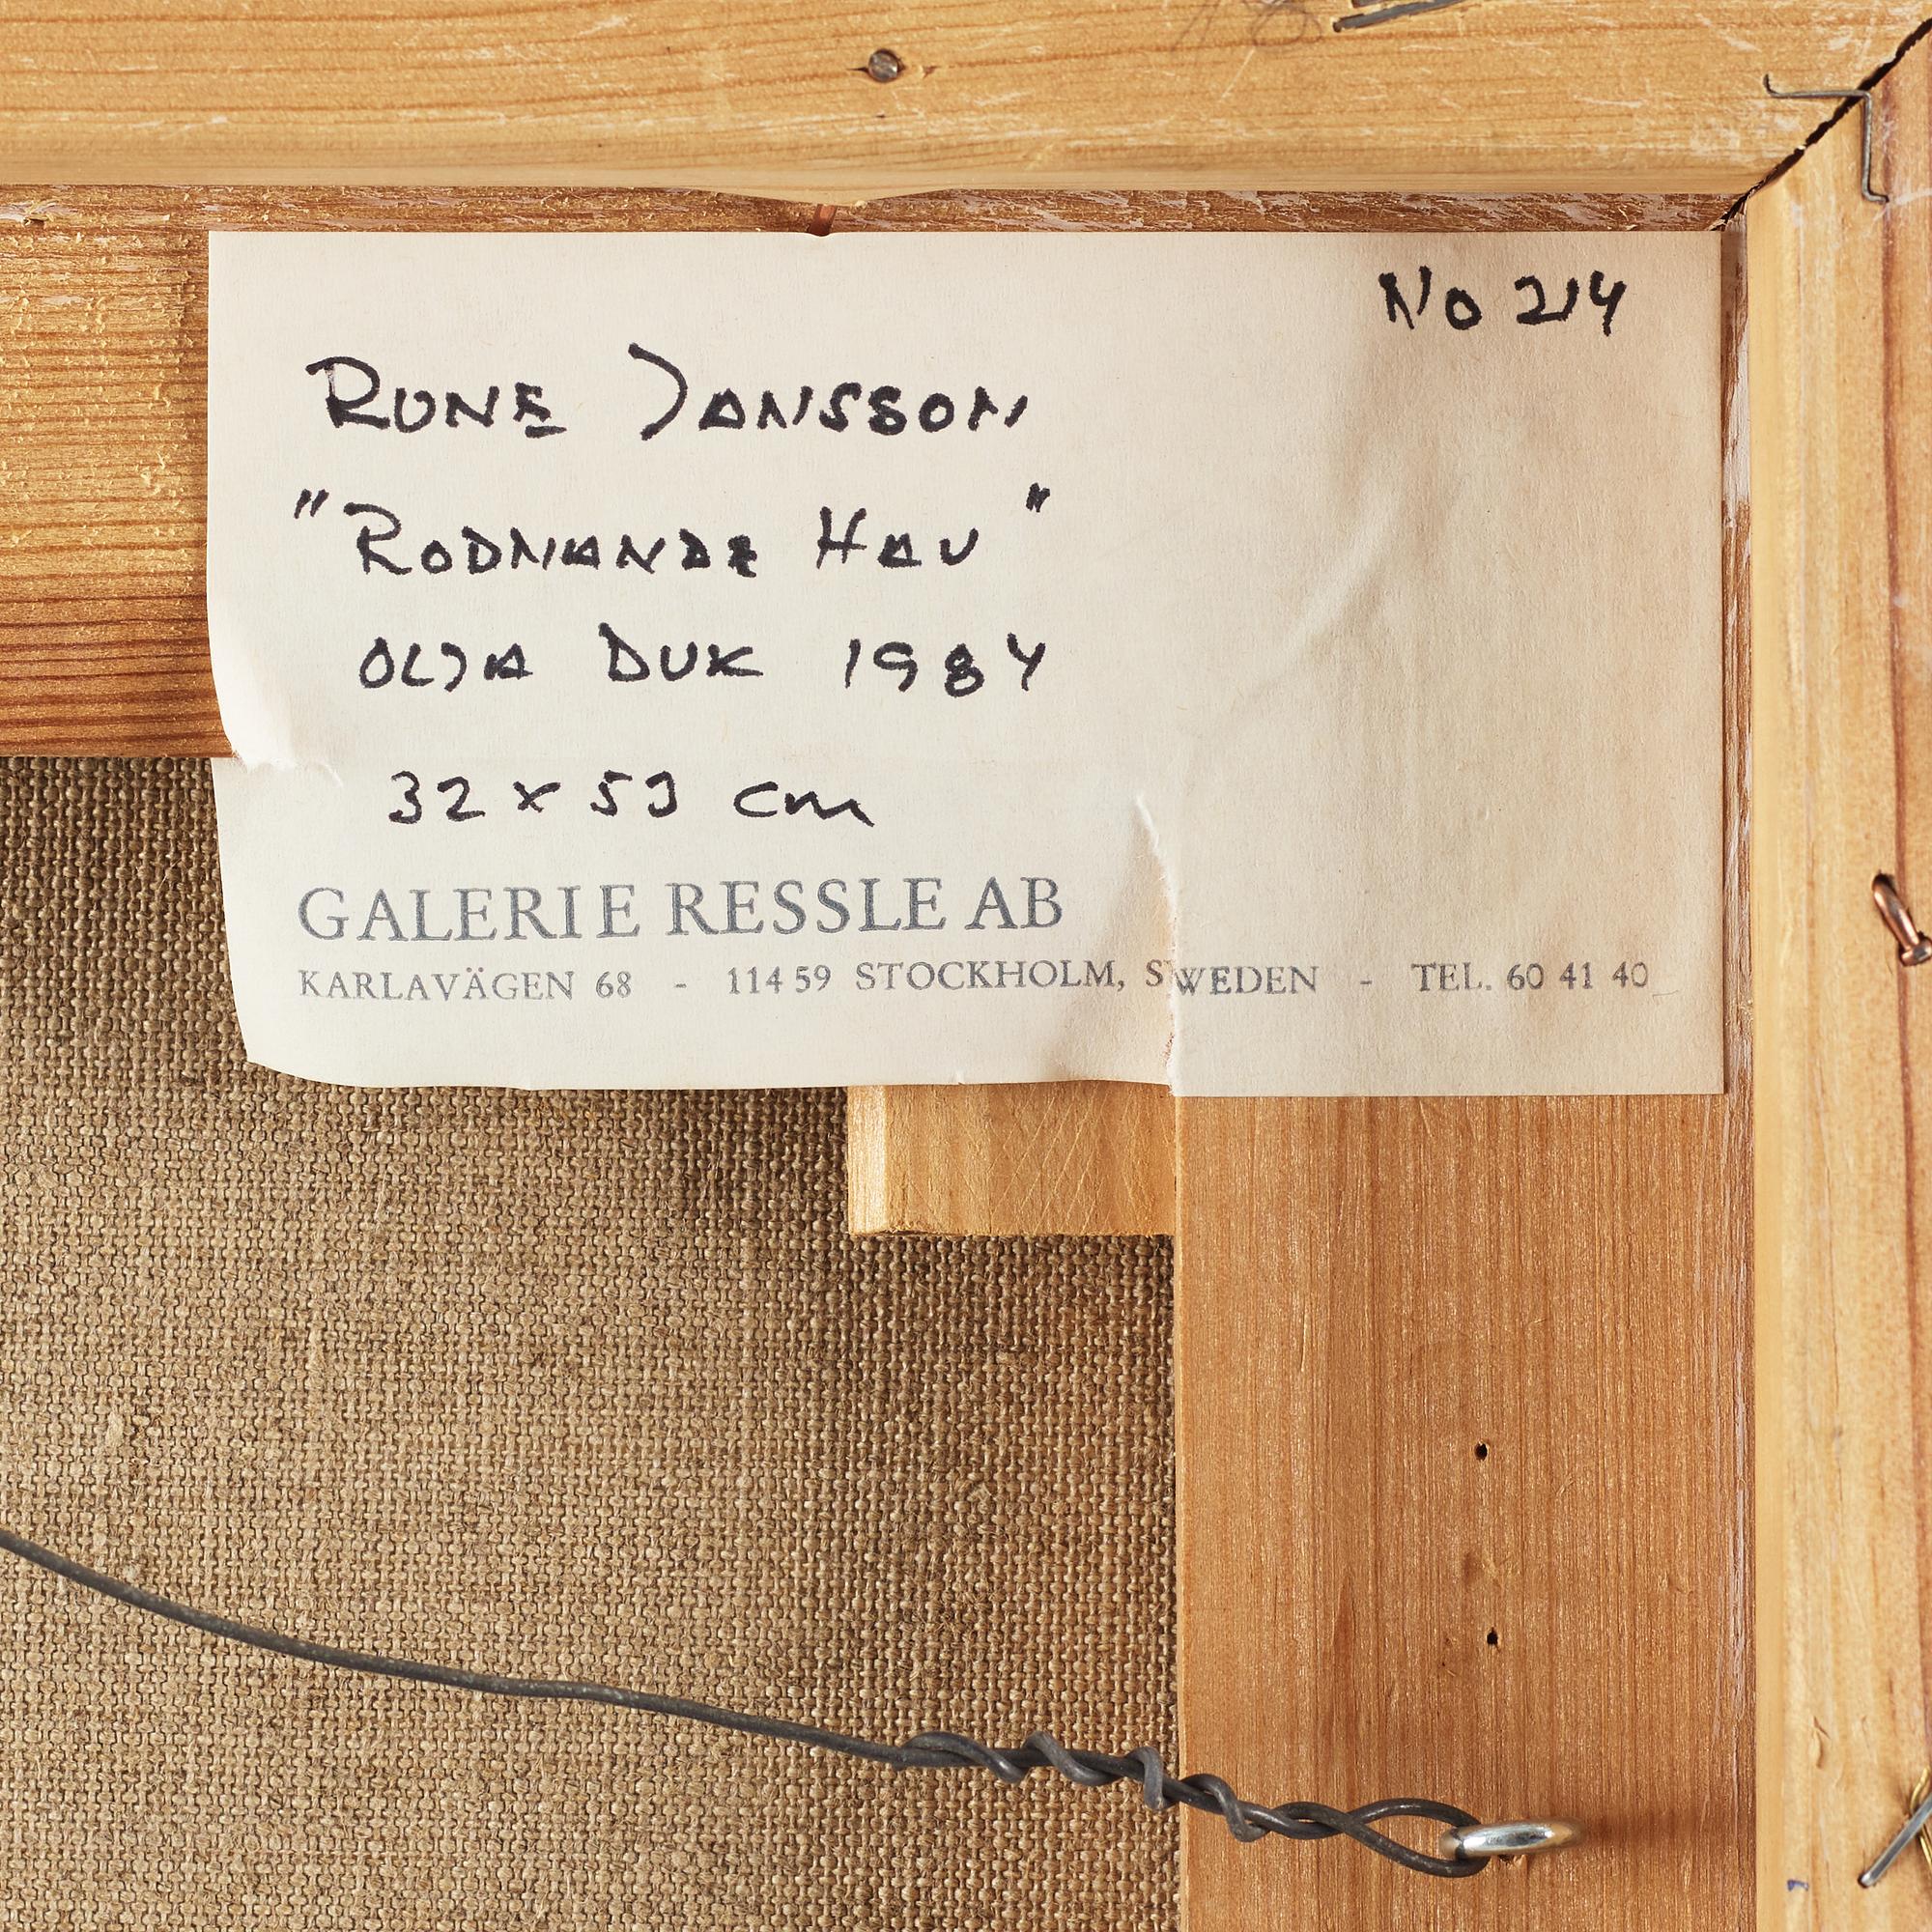 No 214
RUNE JANSSON
"RODNANDE HAV"
OLJA DUK 1984
32 x 53 cm
GALERIE RESSLE AB
KARLAVÄGEN 68 - 114 59 STOCKHOLM, SWEDEN - TEL. 60 41 40